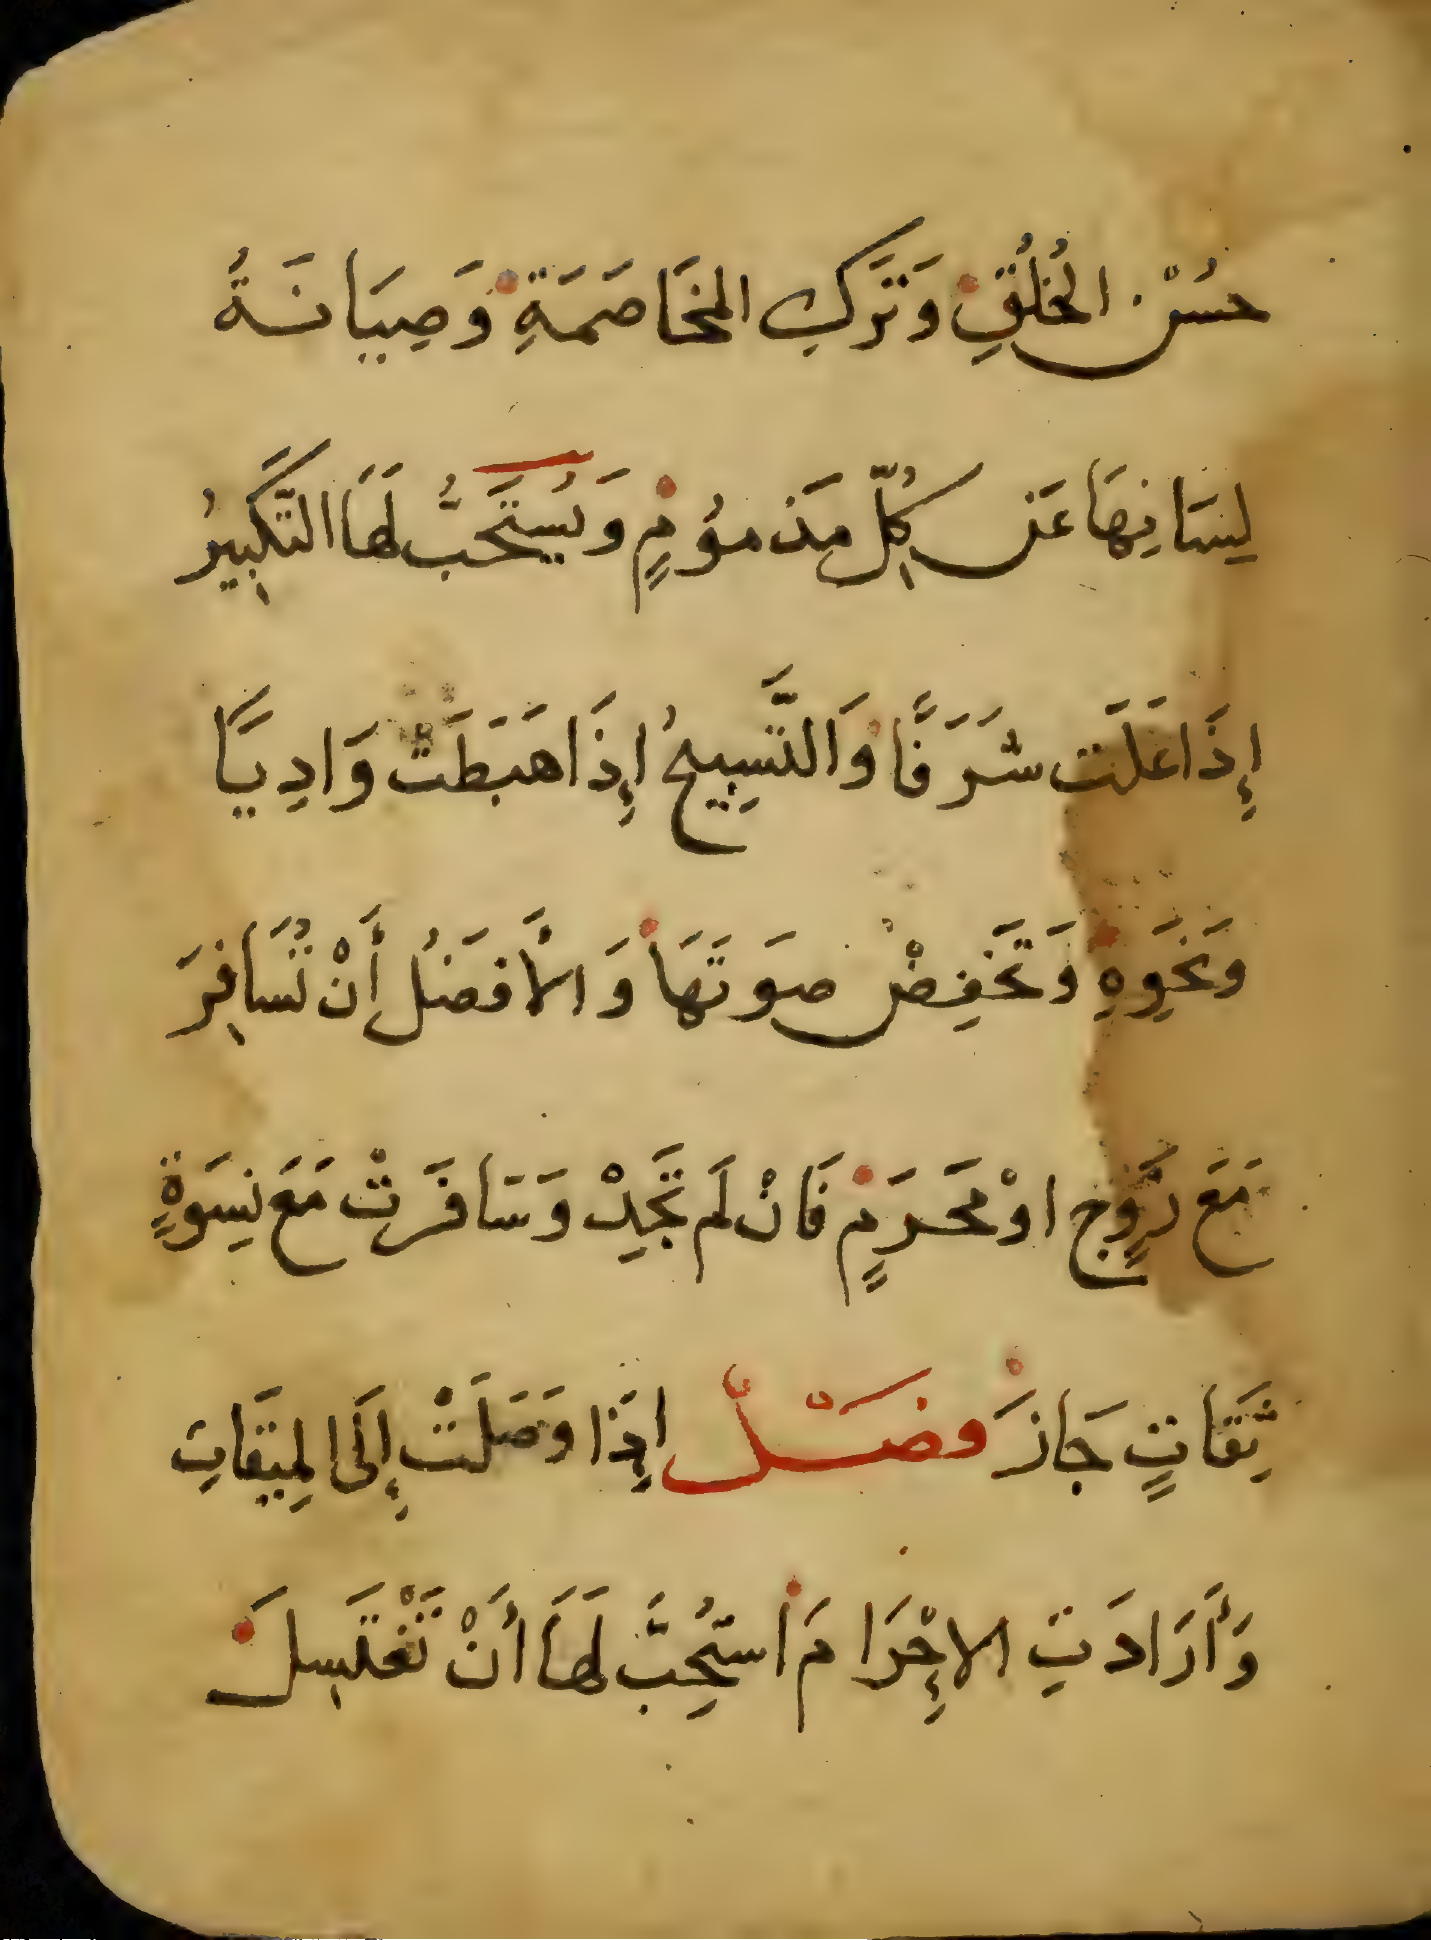 حُسْنِ الخُلُقِ وَتَرَكِ المخَاصَمَةِ وَصِيَانَةُ
لِسَانِهَا عَن كُلِّ مَذمؤُمٍ وَيُسْتَحَبُّ لهَا التَّكبِيرُ
إِذَا عَلَت شَرَفًا وَالتَّسبِيحُ إِذَا هَبَطَتْ وَادِيًا
وَنَحَوِهِ وَتَخَفِضْ صَوتَهَا وَالأَفضَلُ أَنْ تُسَافِرَ
مَعَ زَوْجٍ اوْ مَحَرَمٍ فَانْ لَم تَجِدْ وَسَافَرَتْ مَعَ نِسَوَةٍ
ثِقَاتٍ جَازَ فَصَلٌ اذَِا وَصَلَتْ إِلَى المِيقَاتِ
وَأَرَادَتِ الاِحْرَامَ استُحِبَّ لَهَا أَنْ تَغْتَسِلَ